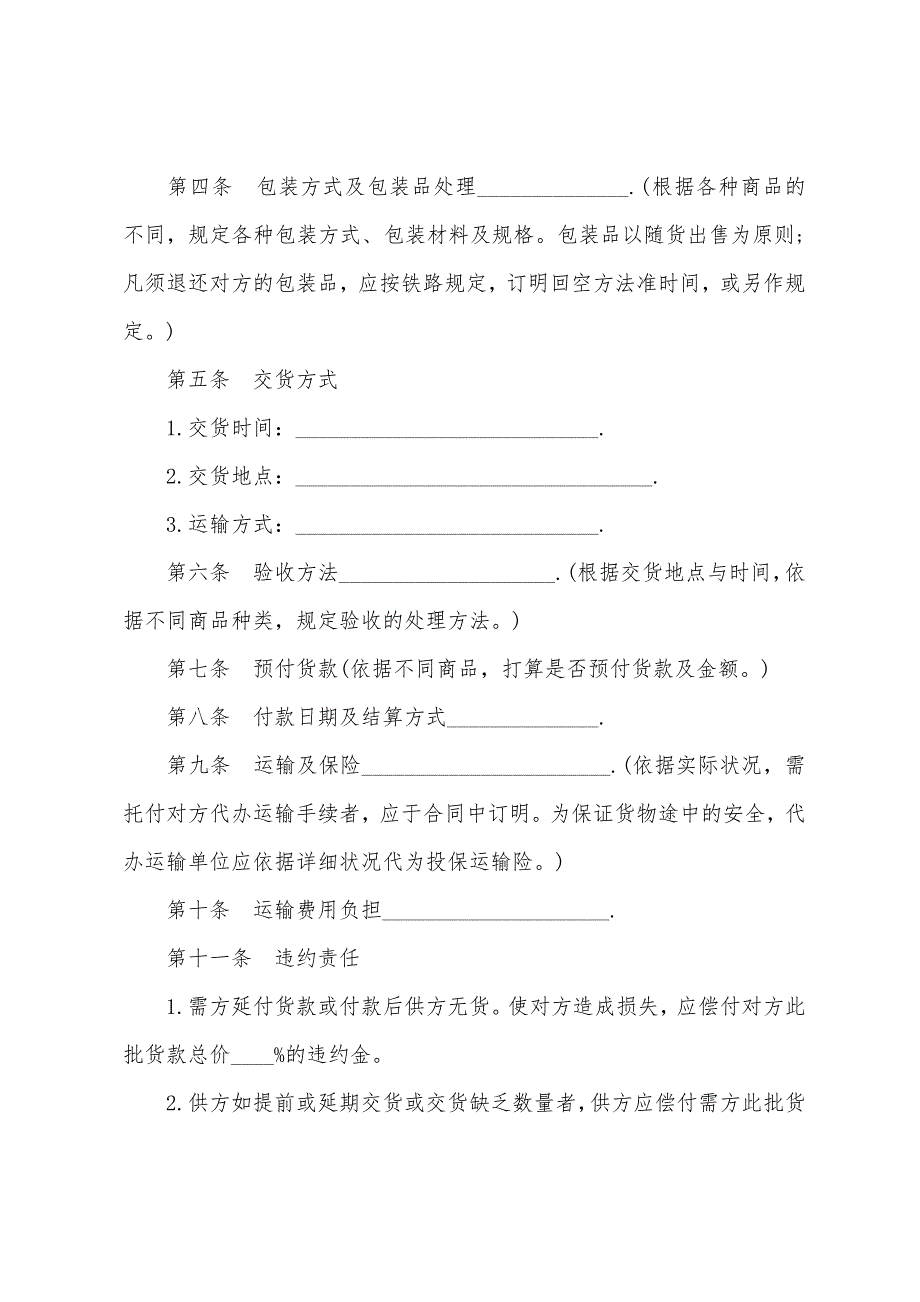 第四条　包装方式及包装品处理______________.(根据各种商品的
不同，规定各种包装方式、包装材料及规格。包装品以随货出售为原则;
凡须退还对方的包装品，应按铁路规定，订明回空方法准时间，或另作规
定。)
第五条　交货方式
1.交货时间：____________________________.
2.交货地点：_________________________________.
3.运输方式：____________________________.
第六条　验收方法____________________.(根据交货地点与时间，依
据不同商品种类，规定验收的处理方法。)
第七条　预付货款(依据不同商品，打算是否预付货款及金额。)
第八条　付款日期及结算方式______________.
第九条　运输及保险_______________________.(依据实际状况，需
托付对方代办运输手续者，应于合同中订明。为保证货物途中的安全，代
办运输单位应依据详细状况代为投保运输险。)
第十条　运输费用负担_____________________.
第十一条　违约责任
1.需方延付货款或付款后供方无货。使对方造成损失，应偿付对方此
批货款总价____%的违约金。
2.供方如提前或延期交货或交货缺乏数量者，供方应偿付需方此批货